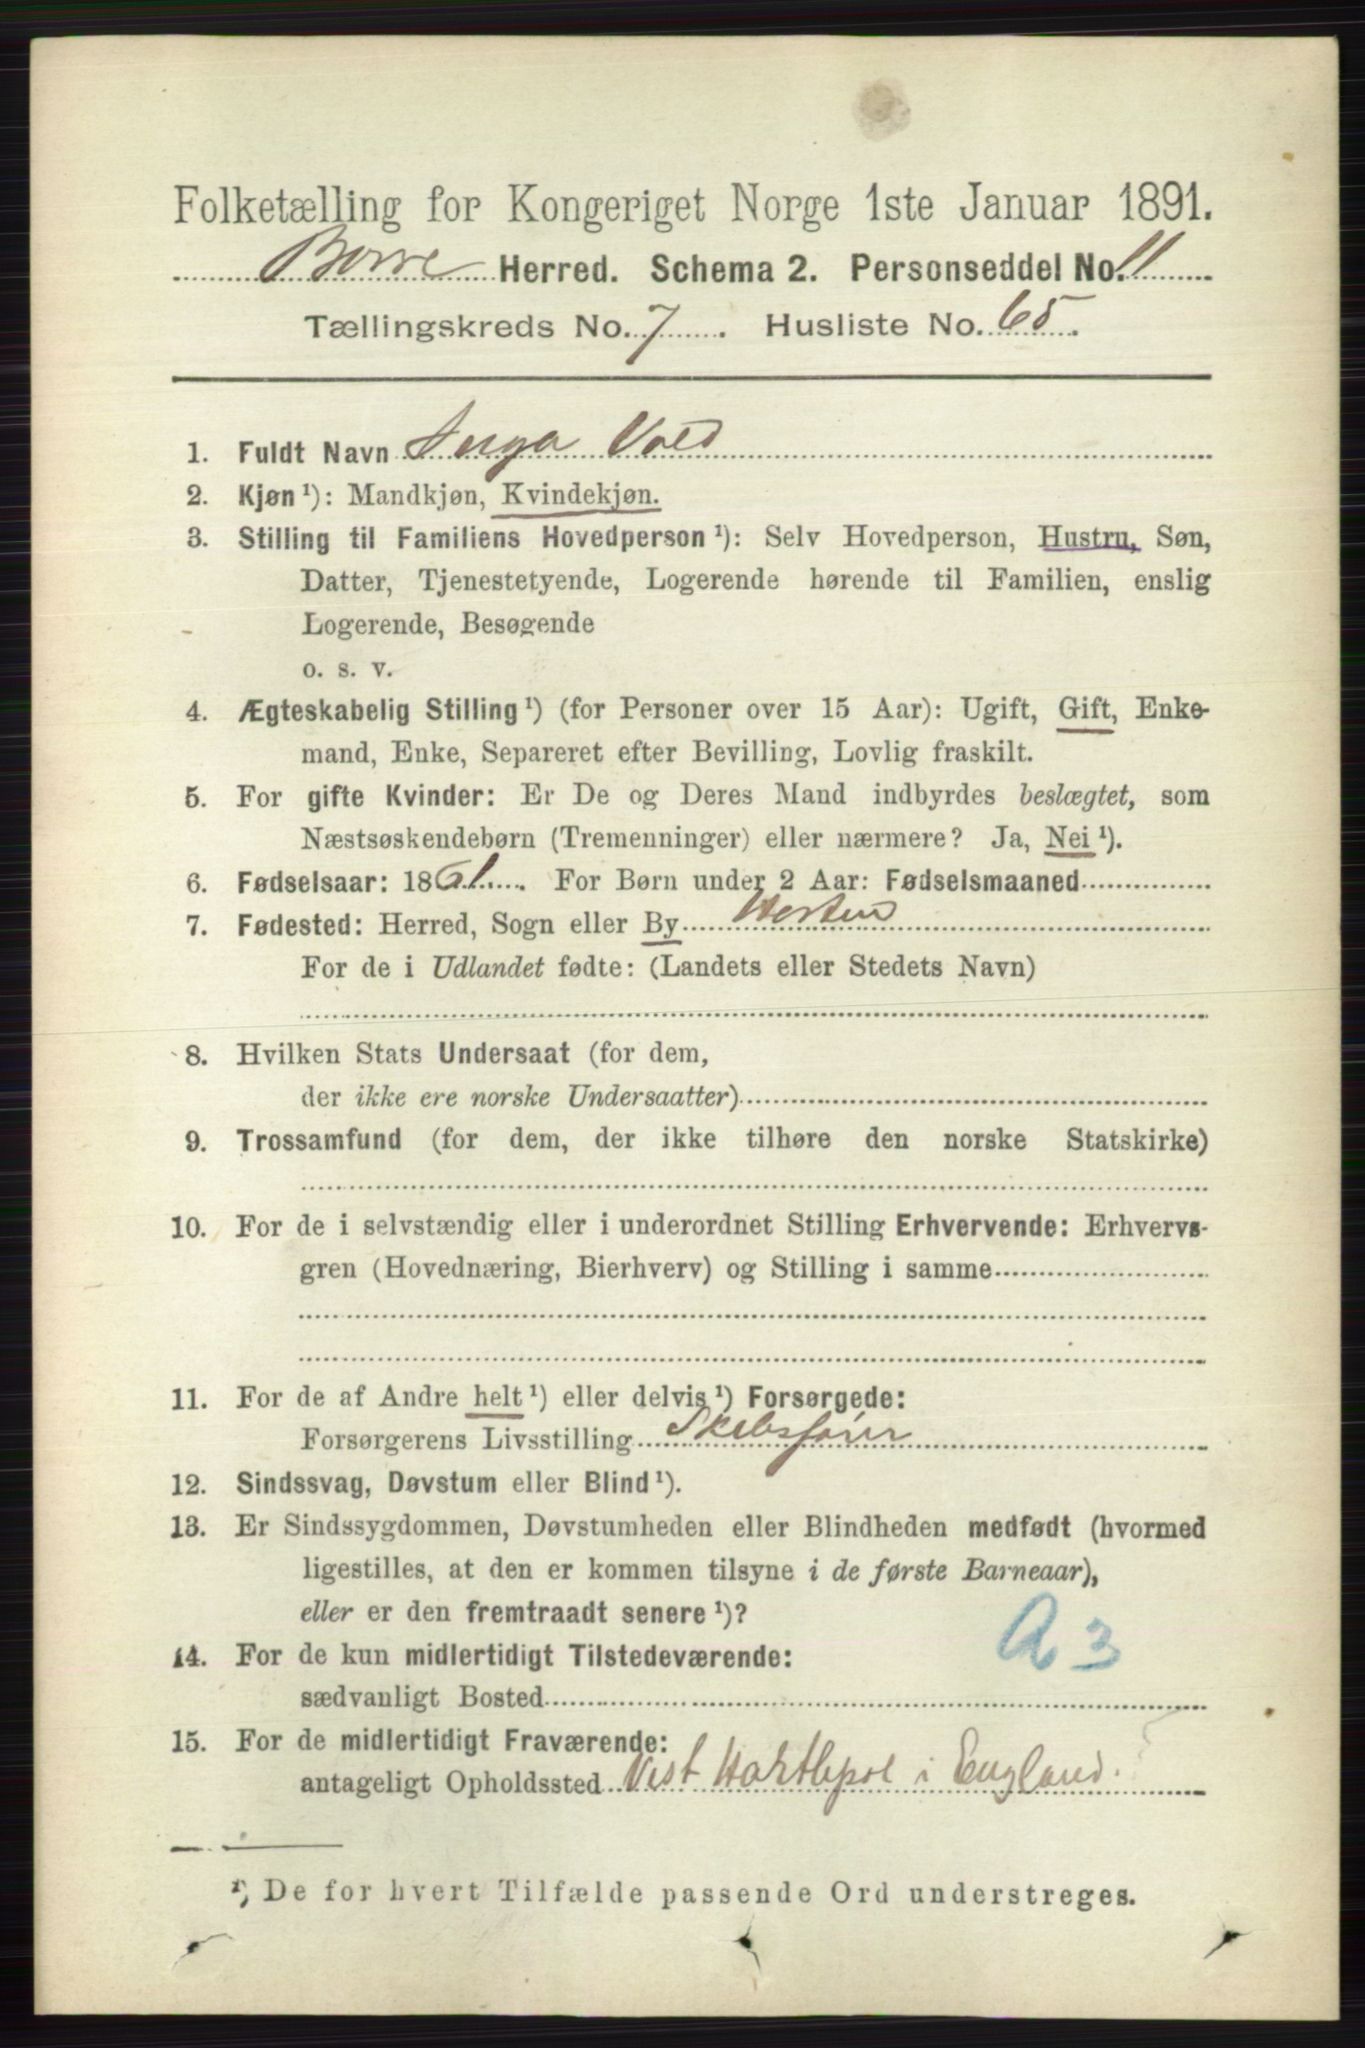 Folketælling for Kongeriget Norge 1ste Januar 1891.
Borre Herred. Schema 2. Personseddel No. 11
Tællingskreds No. 7. Husliste No. 65.
1. Fuldt Navn Inga Vold
2. Kjøn ¹): Mandkjøn, Kvindekjøn.
3. Stilling til Familiens Hovedperson ¹): Selv Hovedperson, Hustru, Søn,
Datter, Tjenestetyende, Logerende hørende til Familien, enslig
Logerende, Besøgende
o. s. v.
4. Ægteskabelig Stilling ¹) (for Personer over 15 Aar): Ugift, Gift, Enke-
mand, Enke, Separeret efter Bevilling, Lovlig fraskilt.
5. For gifte Kvinder: Er De og Deres Mand indbyrdes beslægtet, som
Næstsøskendebørn (Tremenninger) eller nærmere? Ja, Nei ¹).
6. Fødselsaar: 1861. For Børn under 2 Aar: Fødselsmaaned
7. Fødested: Herred, Sogn eller By Horten
For de i Udlandet fødte: (Landets eller Stedets Navn)
8. Hvilken Stats Undersaat (for dem,
der ikke ere norske Undersaatter)
9. Trossamfund (for dem, der ikke tilhøre den norske Statskirke)
10. For de i selvstændig eller i underordnet Stilling Erhvervende: Erhvervs-
gren (Hovednæring, Bierhverv) og Stilling i samme
11. For de af Andre helt ¹) eller delvis ¹) Forsørgede:
Forsørgerens Livsstilling Skibsfører
12. Sindssvag, Døvstum eller Blind ¹).
13. Er Sindssygdommen, Døvstumheden eller Blindheden medfødt (hvormed
ligestilles, at den er kommen tilsyne i de første Barneaar),
eller er den fremtraadt senere ¹)?
A 3
14. For de kun midlertidigt Tilstedeværende:
sædvanligt Bosted
15. For de midlertidigt Fraværende:
antageligt Opholdssted Vest Hartlepol i England.
¹) De for hvert Tilfælde passende Ord understreges.